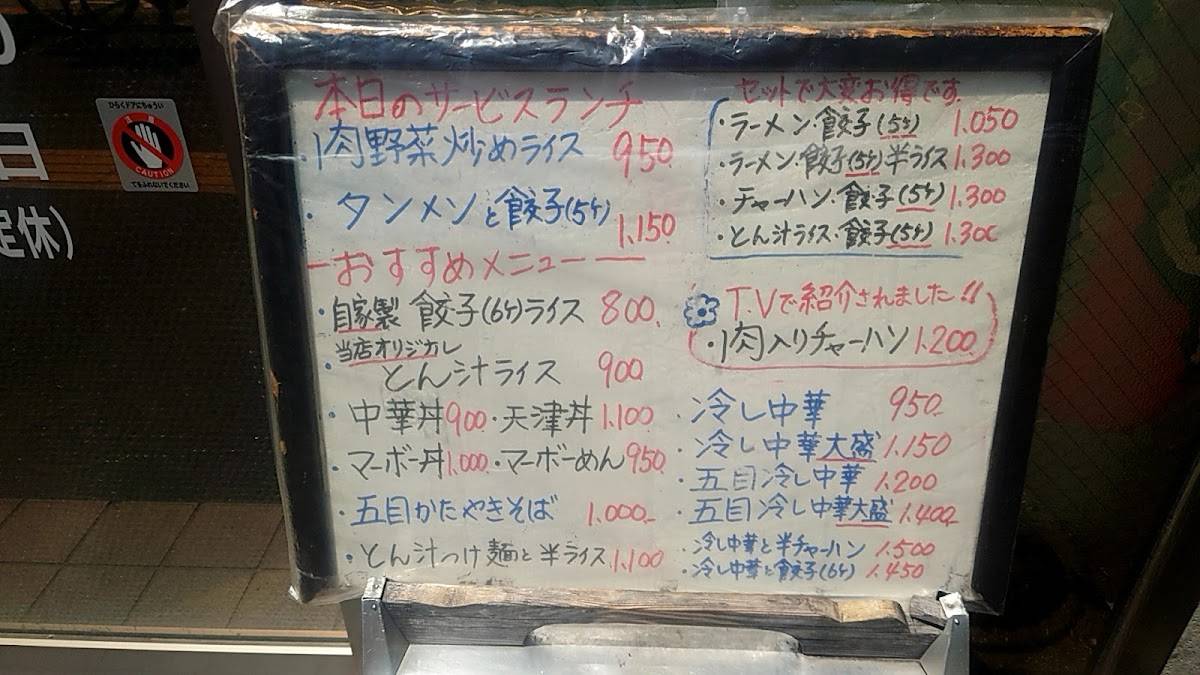 日
定休)
ひらくドアにちゅうい
CAUTION
てをふれないでください
本日のサービスランチ
・肉野菜炒めライス 950
・タンメンと餃子(5ケ) 1.150
ーおすすめメニューー
・自家製 餃子(6ケ)ライス 800.
当店オリジナル
・とん汁ライス 900
・中華丼900.・天津丼1.100
・マーボー丼1.000.・マーボーめん950
・五目かたやきそば 1.000-
・とん汁つけ麺と半ライス1.100
セットで大変お得です.
・ラーメン・餃子(5ケ) 1.050
・ラーメン・餃子(5ケ)半ライス1.300
・チャーハン・餃子(5ケ)1.300
・とん汁ライス・餃子(5ケ)1.300
T.Vで紹介されました!!
・肉入りチャーハン1.200
・冷し中華 950-
・冷し中華大盛1.150
・五目冷し中華 1.200
・五目冷し中華大盛 1.400-
・冷し中華と半チャーハン 1.500
・冷し中華と餃子(6ケ) 1.450